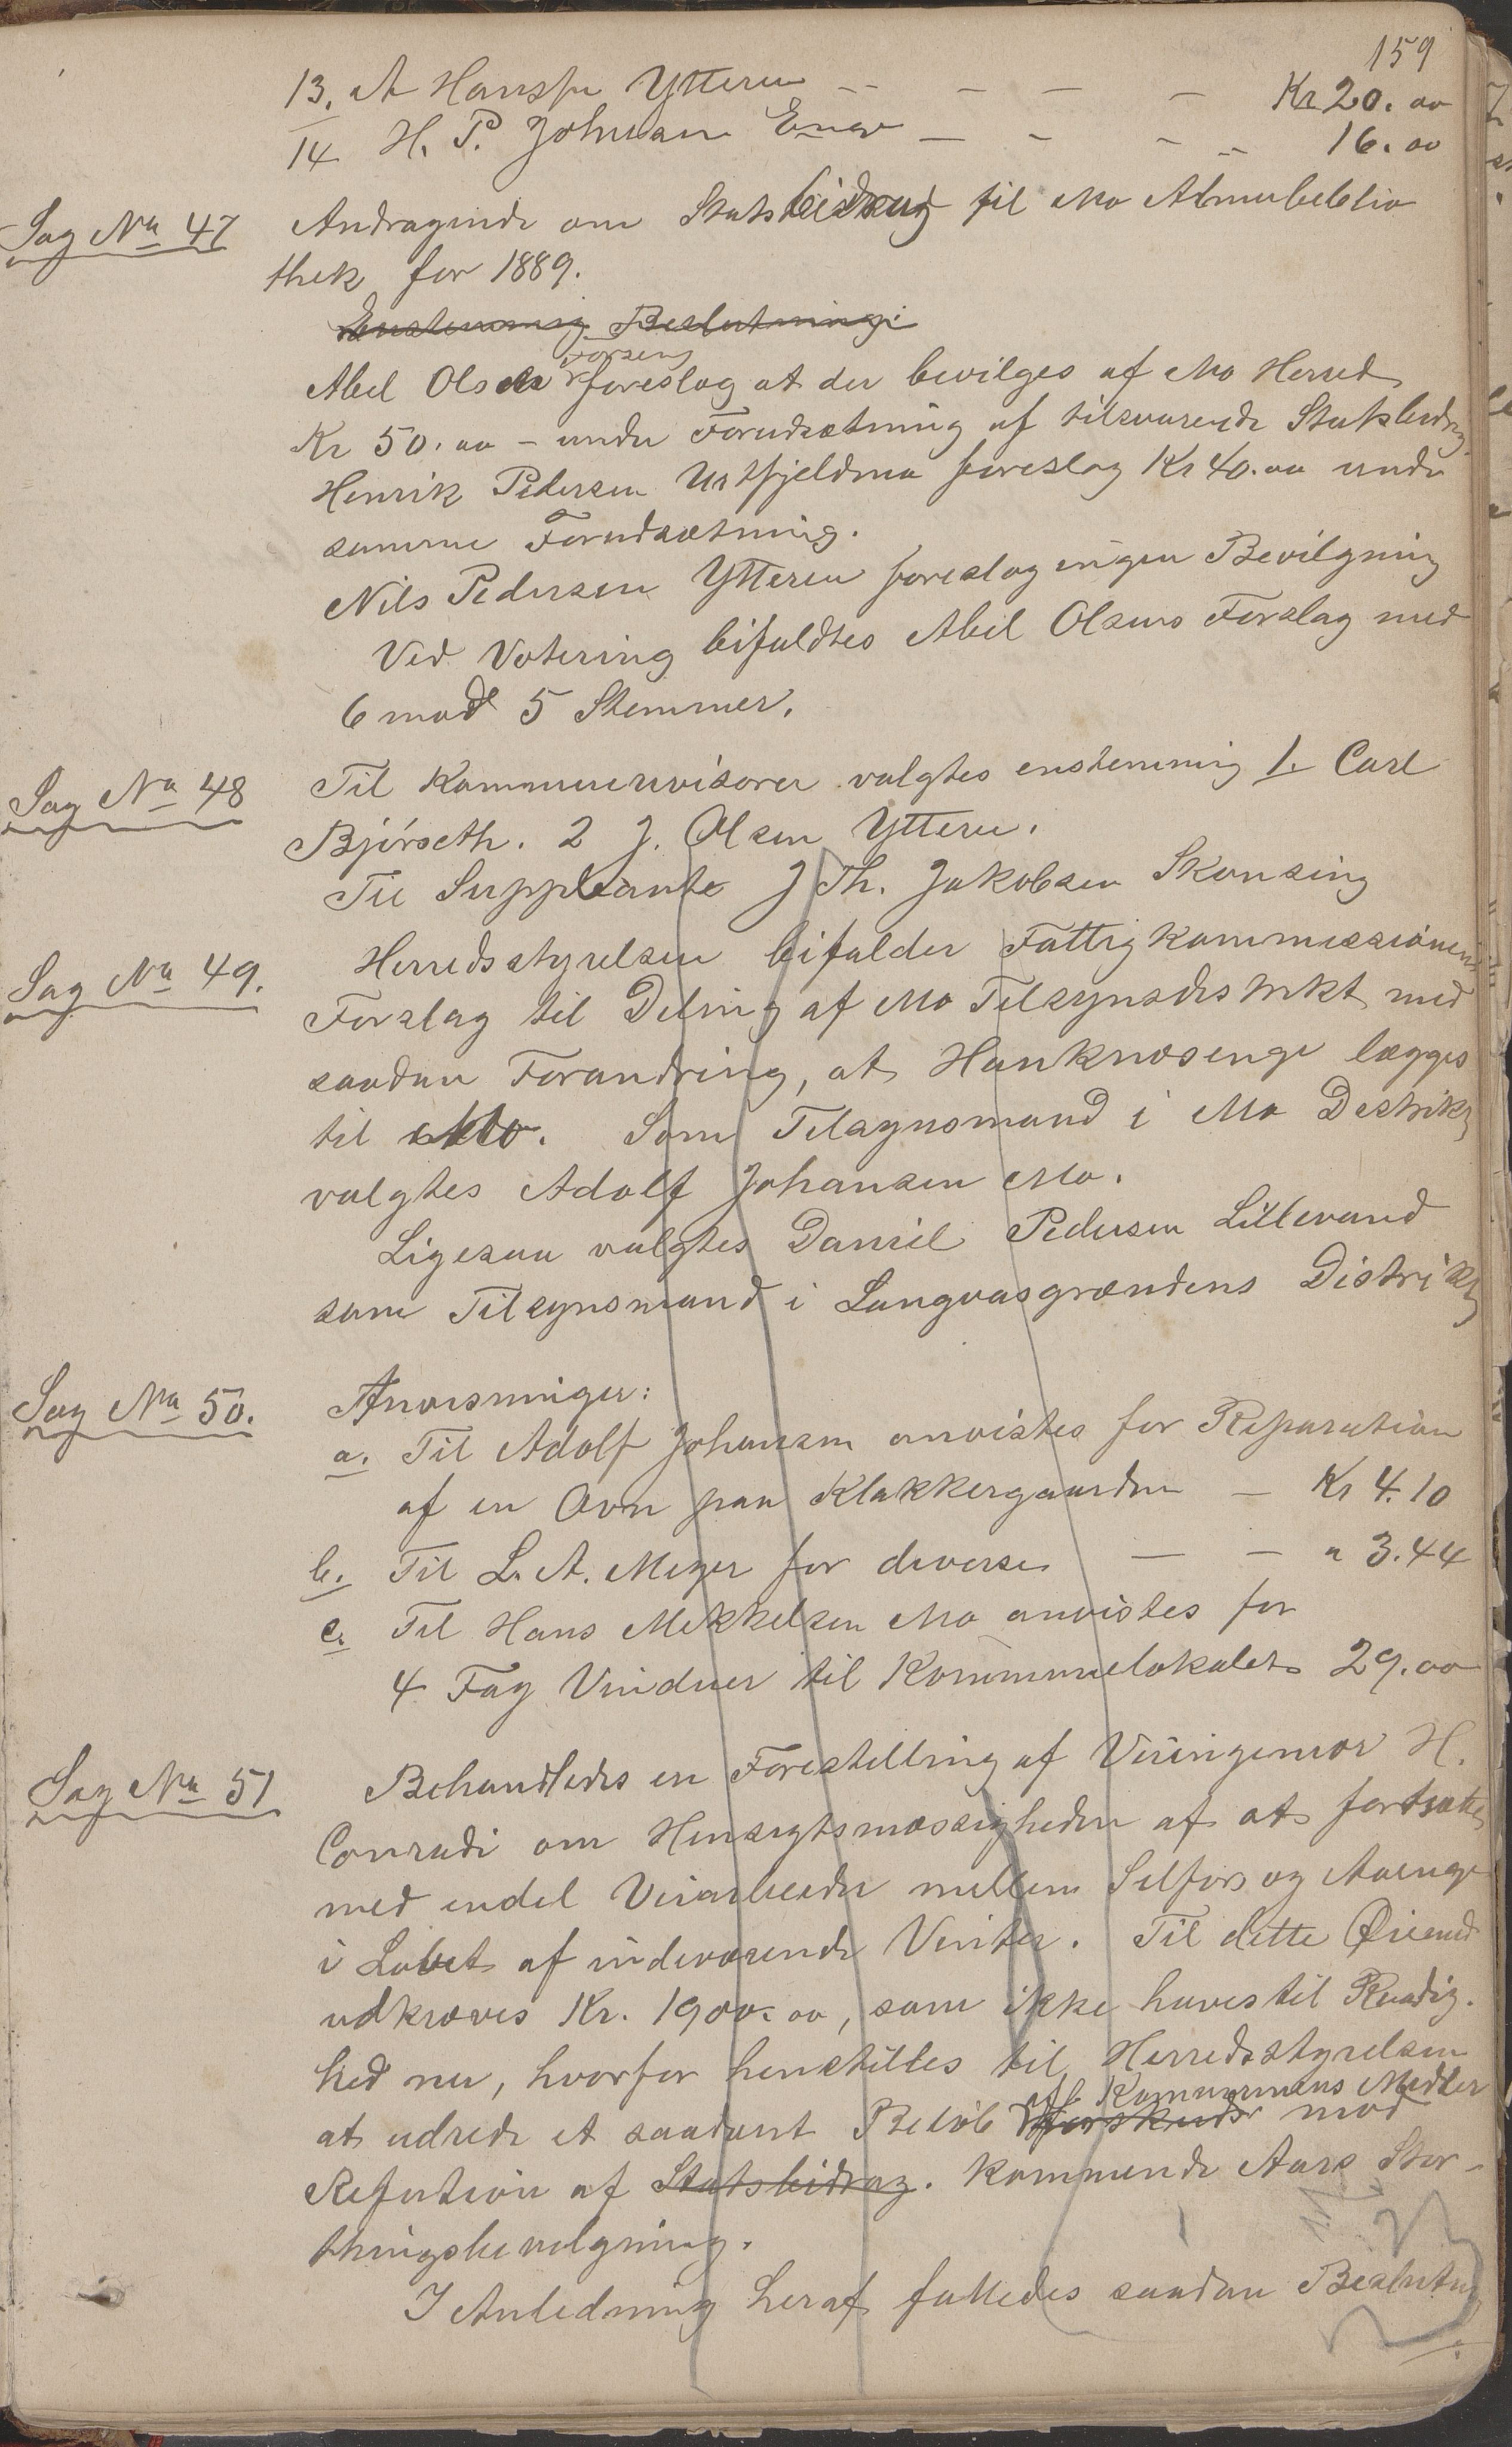 159
13. A Hansen Ytteren — — — — Kr 20.00
14 H. P. Johnsan Enge — — — — 16.00
Sag No 47 Andragende om Statsbidrag til Mo Almuebiblio
thek for 1889.
Enstemmig Beslutning:
Abel Olsen Forseng foreslog at der bevilges af Mo Herred
Kr 50.00 - under Forudsætning af tilsvarende Statsbidrag
Henrik Pedersen Urtfjeldmo foreslog Kr 40.00 under
samme Forudsætning.
Nils Pedersen Ytteren foreslog ingen Bevilgning
Ved Votering bifaldtes Abel Olsens Forslag med
6 mod 5 Stemmer.
Sag No 48 Til Kommunerevisorer valgtes enstemmig 1. Carl
Bjørseth. 2 J. Olsen Ytteren.
Til Suppleante J Th. Jakobsen Skonseng
Sag No 49. Herredsstyrelsen bifalder Fattigkommissionens
Forslag til Deling af Mo Tilsynsdistrikt med
saadan Forandring, at Hauknæsenge lægges
til Mo. Som Tilsynsmand i Mo Distrikt
valgtes Adolf Johansen Mo.
Ligesaa valgtes Daniel Pedersen Lillevand
som Tilsynsmand i Langvasgrændens Distrikt
Sag No 50. Anvisninger:
a. Til Adolf Johansen anvistes for Reparation
af en Ovn paa Klokkergaarden — Kr 4.10
b. Til L. A. Meyer for diverse — — " 3.44
c. Til Hans Mikkelsen Mo anvistes for
4 Fag Vinduer til Kommunelokalet 29.00
Sag No 51 Behandledes en Forestilling af Veiingeniør H.
Conradi om Hensigtsmæssigheden af at fortsætte
med endel Veiarbeide mellem Selfors og Aaenge
i Løbet af indeværende Vinter. Til dette Øiemed
udkræves Kr. 1900.00, som ikke haves til Raadig-
hed nu, hvorfor henstilles til Herredsstyrelsen
at udrede et saadant Beløb af Kommunens Midler
forskuds mod
Refusion af Statsbidrag. kommende Aars Stor-
thingsbevilgning.
I Anledning heraf fattedes saadan Beslutning